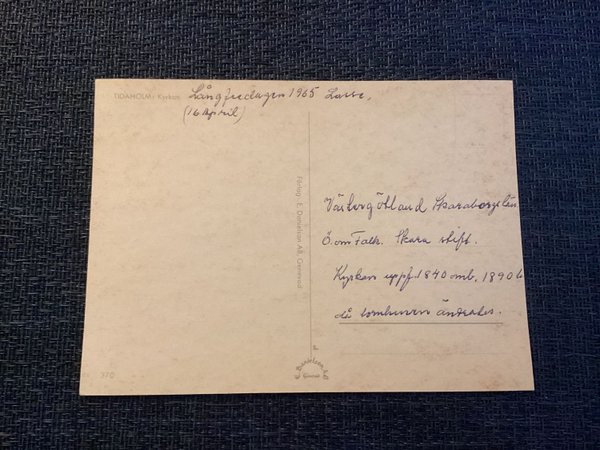 TIDAHOLM. Kyrkan
Långfredagen 1965 Lasse.
(16 April)
Förlag: E. Danielson AB, Grenned
Västergötland Skaraborgs län
Ö. om Falk. Skara stift.
Kyrkan uppf. 1840 omb. 1890
då tornhuven ändrades.
370